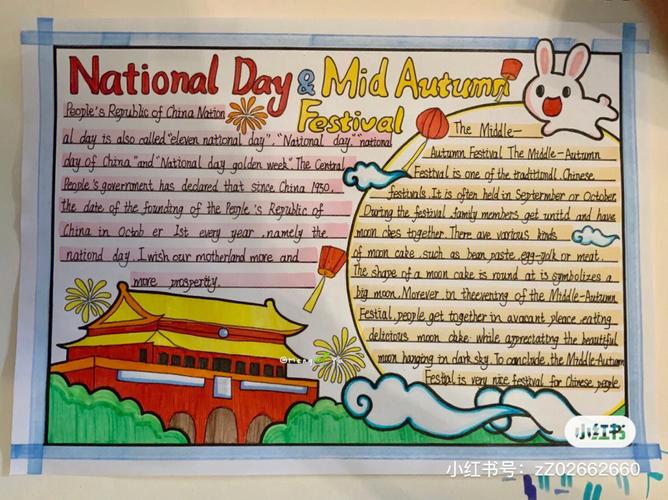 National Day & Mid Autumn
Festival
People's Republic of China Nation
al day is also called "eleven national day", "National day, "national
day of China" and "National day golden week". The Central
People's government has declared that since China 1950,
the date of the founding of the People's Republic of
China in Octob er 1st every year, namely the
nationd day. I wish our motherland more and
more prosperity.
The Middle-
Autumn Festival The Middle-Autumn
Festival is one of the traditional Chinese
festivals. It is often held in Septermber or October.
During the festival family members get unitd and have
moon cbes together. There are various kinds
of moon cake such as bean paste, egg-yolk or meat.
The shape of a moon cake is round at is symbolizes a
big moon. Morever, in theevening of the Middle-Autumn
Festial, people get together in avacant pleace, eating
delicious moon cake while appreciating the beautiful
moon hanging in dark sky. To conclude, the Middle-Autumn
Festial is very nice festival for Chinese people.
小红书
小红书号: zZ02662660